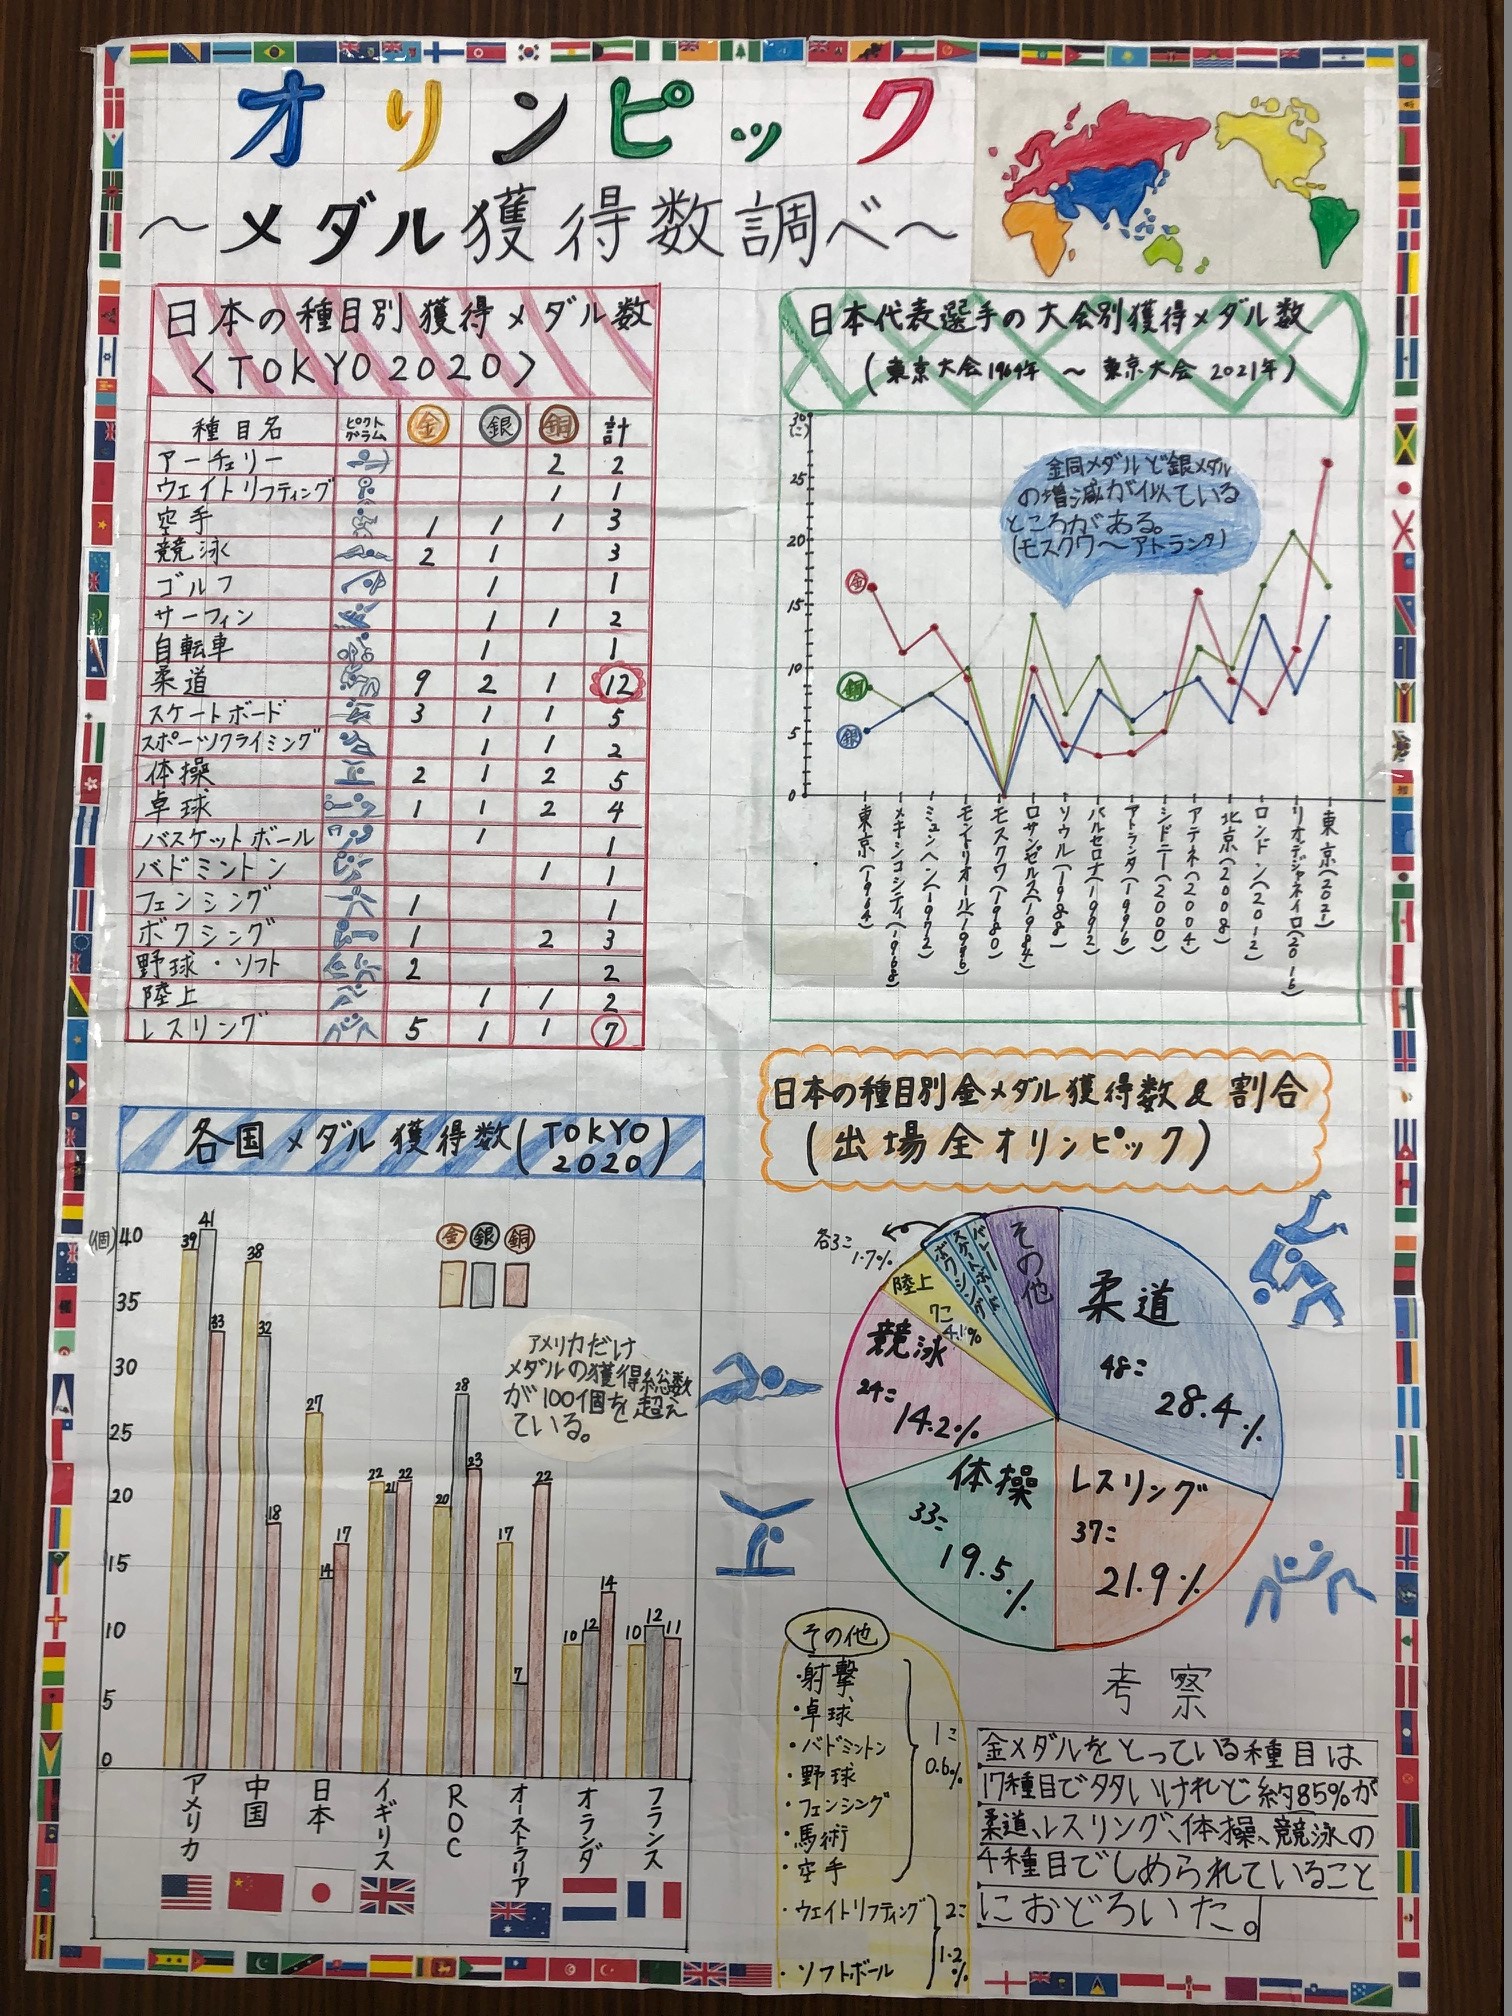 オリンピック
～メダル獲得数調べ～
日本の種目別獲得メダル数
〈TOKYO2020〉
種目名 ピクトグラム 金 銀 銅 計
アーチェリー 2 2
ウェイトリフティング 1 1
空手 1 1 1 3
競泳 2 1 3
ゴルフ 1 1
サーフィン 1 1 2
自転車 1 1
柔道 9 2 1 12
スケートボード 3 1 1 5
スポーツクライミング 1 1 2
体操 2 1 2 5
卓球 1 1 2 4
バスケットボール 1 1
バドミントン 1 1
フェンシング 1 1
ボクシング 1 2 3
野球・ソフト 2 2
陸上 1 1 2
レスリング 5 1 1 7
日本代表選手の大会別獲得メダル数
(東京大会1964年 ～ 東京大会 2021年)
30
(こ)
25
20
15
10
5
0
金
銅
銀
金同メダルと銀メダル
の増減が似ている
ところがある。
(モスクワ～アトランタ)
東京(1964)
メキシコシティ(1968)
ミュンヘン(1972)
モントリオール(1996)
モスクワ(1980)
ロサンゼルス(1984)
ソウル(1988)
バルセロナ(1992)
アトランタ(1996)
シドニー(2000)
アテネ(2004)
北京(2008)
ロンドン(2012)
リオデジャネイロ(2016)
東京(2021)
各国メダル獲得数(TOKYO
2020)
(個)
40
35
30
25
20
15
10
5
0
金 銀 銅
アメリカだけ
メダルの獲得総数
が100個を超え
ている。
39 41 33
38 32 18
27 14 17
22 21 22
20 28 23
17 7 22
10 12 14
10 12 11
アメリカ
中国
日本
イギリス
ROC
オーストラリア
オランダ
フランス
日本の種目別金メダル獲得数&割合
(出場全オリンピック)
柔道
48こ
28.4%
レスリング
37こ
21.9%
体操
33こ
19.5%
競泳
24こ
14.2%
陸上
7こ
4.1%
ボクシング
スケートボード
バレー
各3こ
1.7%
その他
その他
・射撃
・卓球
・バドミントン
・野球
・フェンシング
・馬術
・空手
1こ
0.6%
・ウェイトリフティング
・ソフトボール
2こ
1.2%
考察
金メダルをとっている種目は
17種目で多いけれど約85%が
柔道、レスリング、体操、競泳の
4種目でしめられていること
におどろいた。